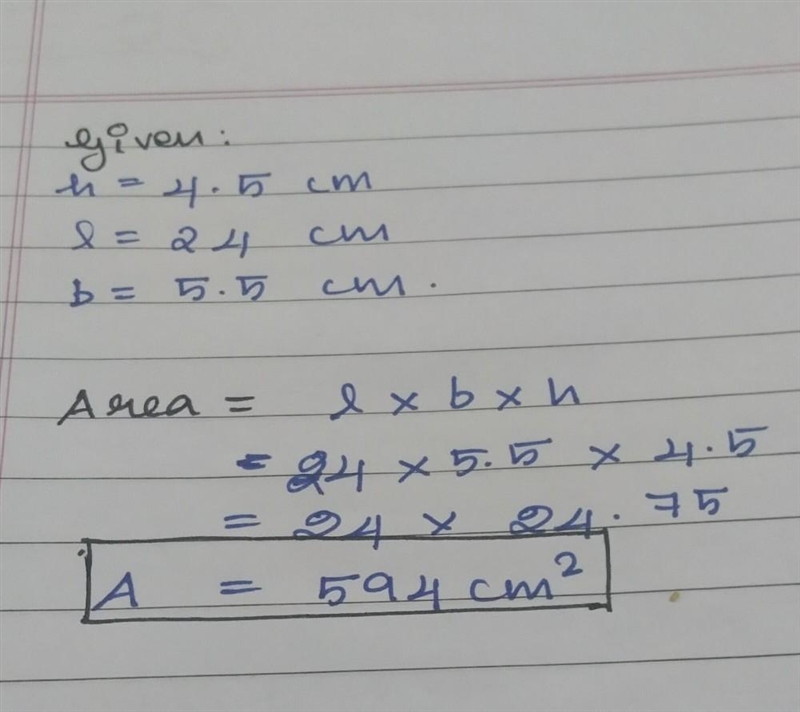 Given:
h = 4.5 cm
l = 24 cm
b = 5.5 cm.
Area = l × b × h
= 24 × 5.5 × 4.5
= 24 × 24.75
A = 594 cm²